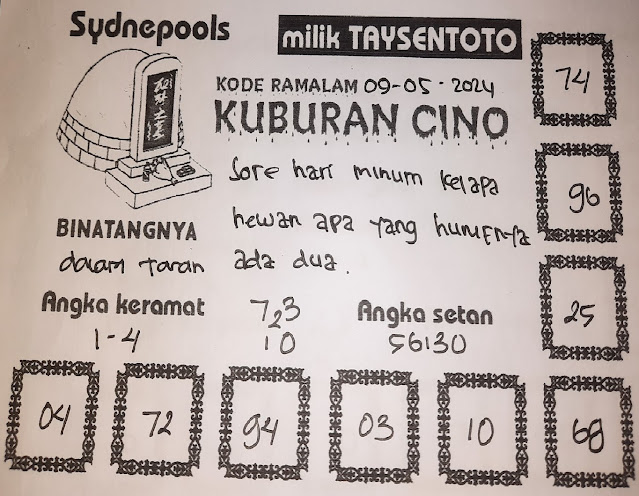 Sydnepools
milik TAYSENTOTO
KODE RAMALAM 09-05-2024
KUBURAN CINO
Sore hari minum kelapa
hewan apa yang hurufnya
ada dua.
BINATANGNYA
dalam taran
Angka keramat
1-4
723
10
Angka setan
56130
74
96
25
04 72 94 03 10 68